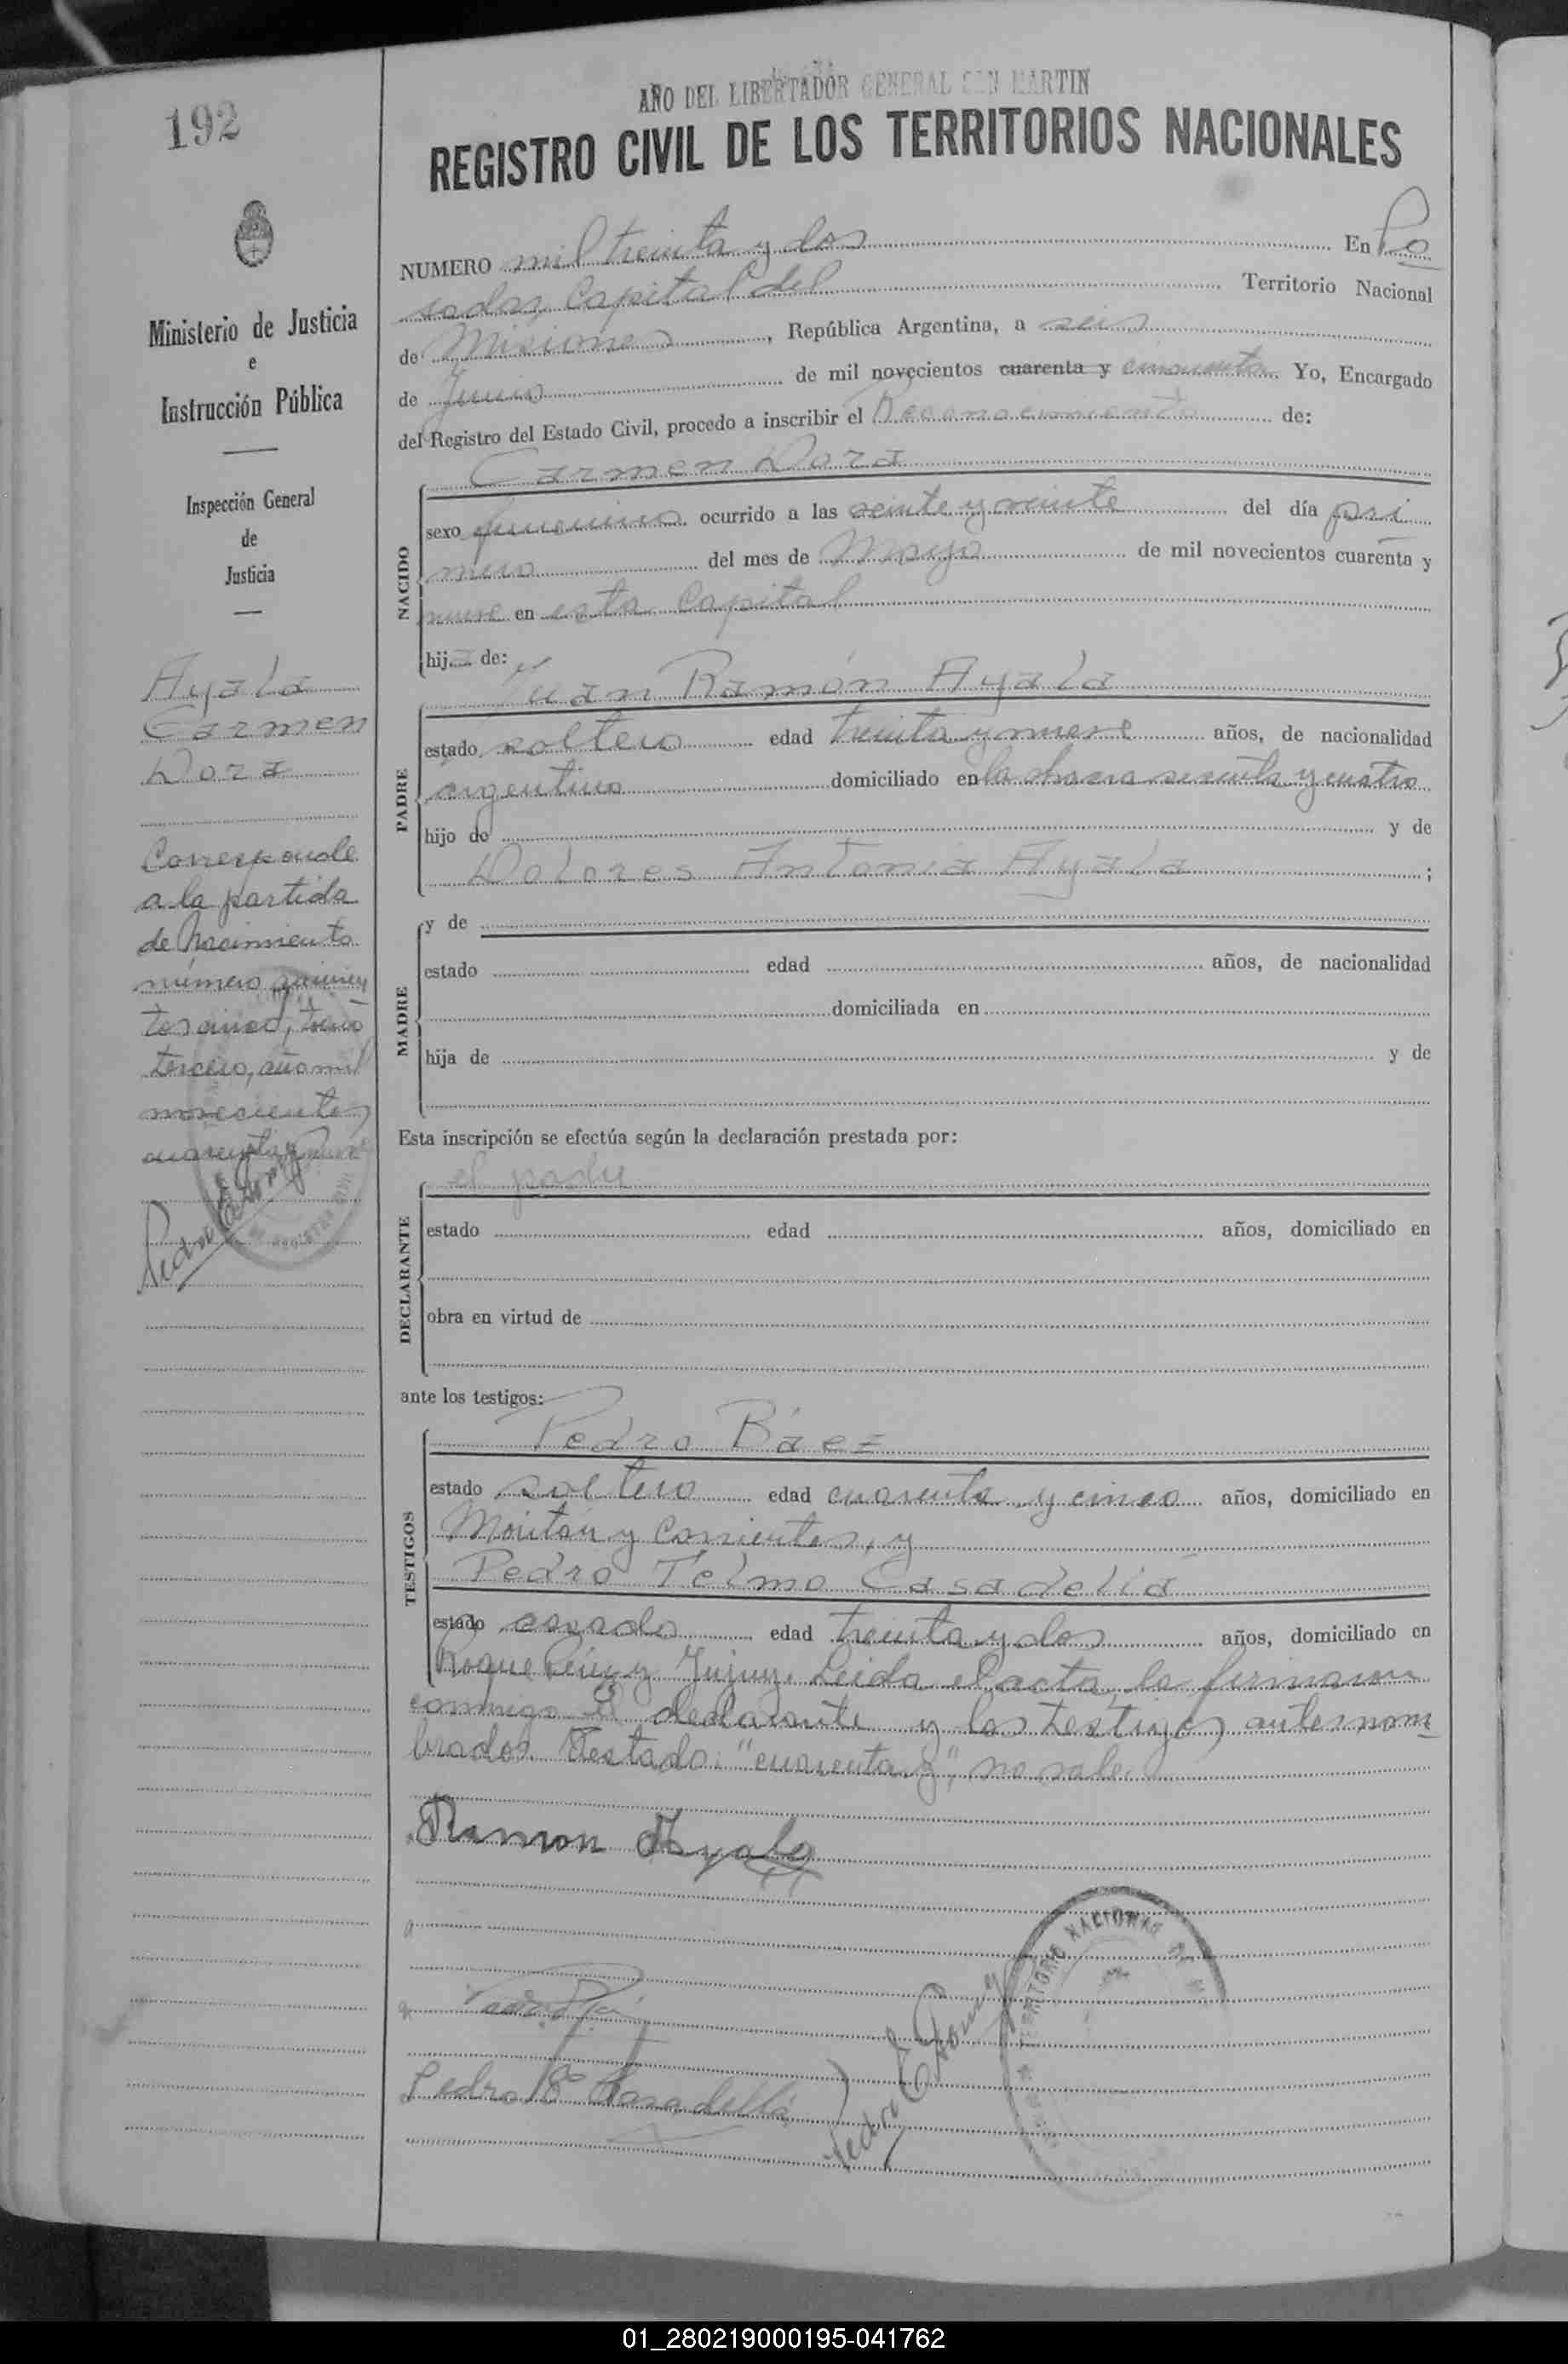 192
Ministerio de Justicia
e
Instrucción Pública
Inspección General
de
Justicia
Ayala
Carmen
Dora
Corresponde
a la partida
de Nacimiento
número quinien
tos cinco, tomo
tercero, año mil
novecientos
cuarenta y nueve
AÑO DEL LIBERTADOR GENERAL SAN MARTIN
REGISTRO CIVIL DE LOS TERRITORIOS NACIONALES
NUMERO mil treinta y dos En Po
sadas, Capital del Territorio Nacional
de Misiones, República Argentina, a seis
de Junio de mil novecientos cuarenta y cincuenta Yo, Encargado
del Registro del Estado Civil, procedo a inscribir el Reconocimiento de:
Carmen Dora
NACIDO
sexo femenino ocurrido a las veinte y veinte del día pri
mero del mes de Mayo de mil novecientos cuarenta y
nueve en esta Capital
hija de:
Juan Ramón Ayala
PADRE
estado soltero edad treinta y nueve años, de nacionalidad
argentino domiciliado en la chacra sesenta y cuatro
hijo de y de
Dolores Antonia Ayala ;
MADRE
y de
estado edad años, de nacionalidad
domiciliada en
hija de y de
Esta inscripción se efectúa según la declaración prestada por:
el padre
DECLARANTE
estado edad años, domiciliado en
obra en virtud de
ante los testigos:
Pedro Báez
TESTIGOS
estado soltero edad cuarenta y cinco años, domiciliado en
Moritán y Corrientes, y
Pedro Télmo Casadeliá
estado casado edad treinta y dos años, domiciliado en
Roque Pérez y Jujuy. Leida el acta, la firmaron
conmigo el declarante y los testigos anternom
brados. Testado: "cuarenta y", no vale.
Ramon Ayala
Pedro Casadellá
TERRITORIO NACIONAL DE
01_280219000195-041762